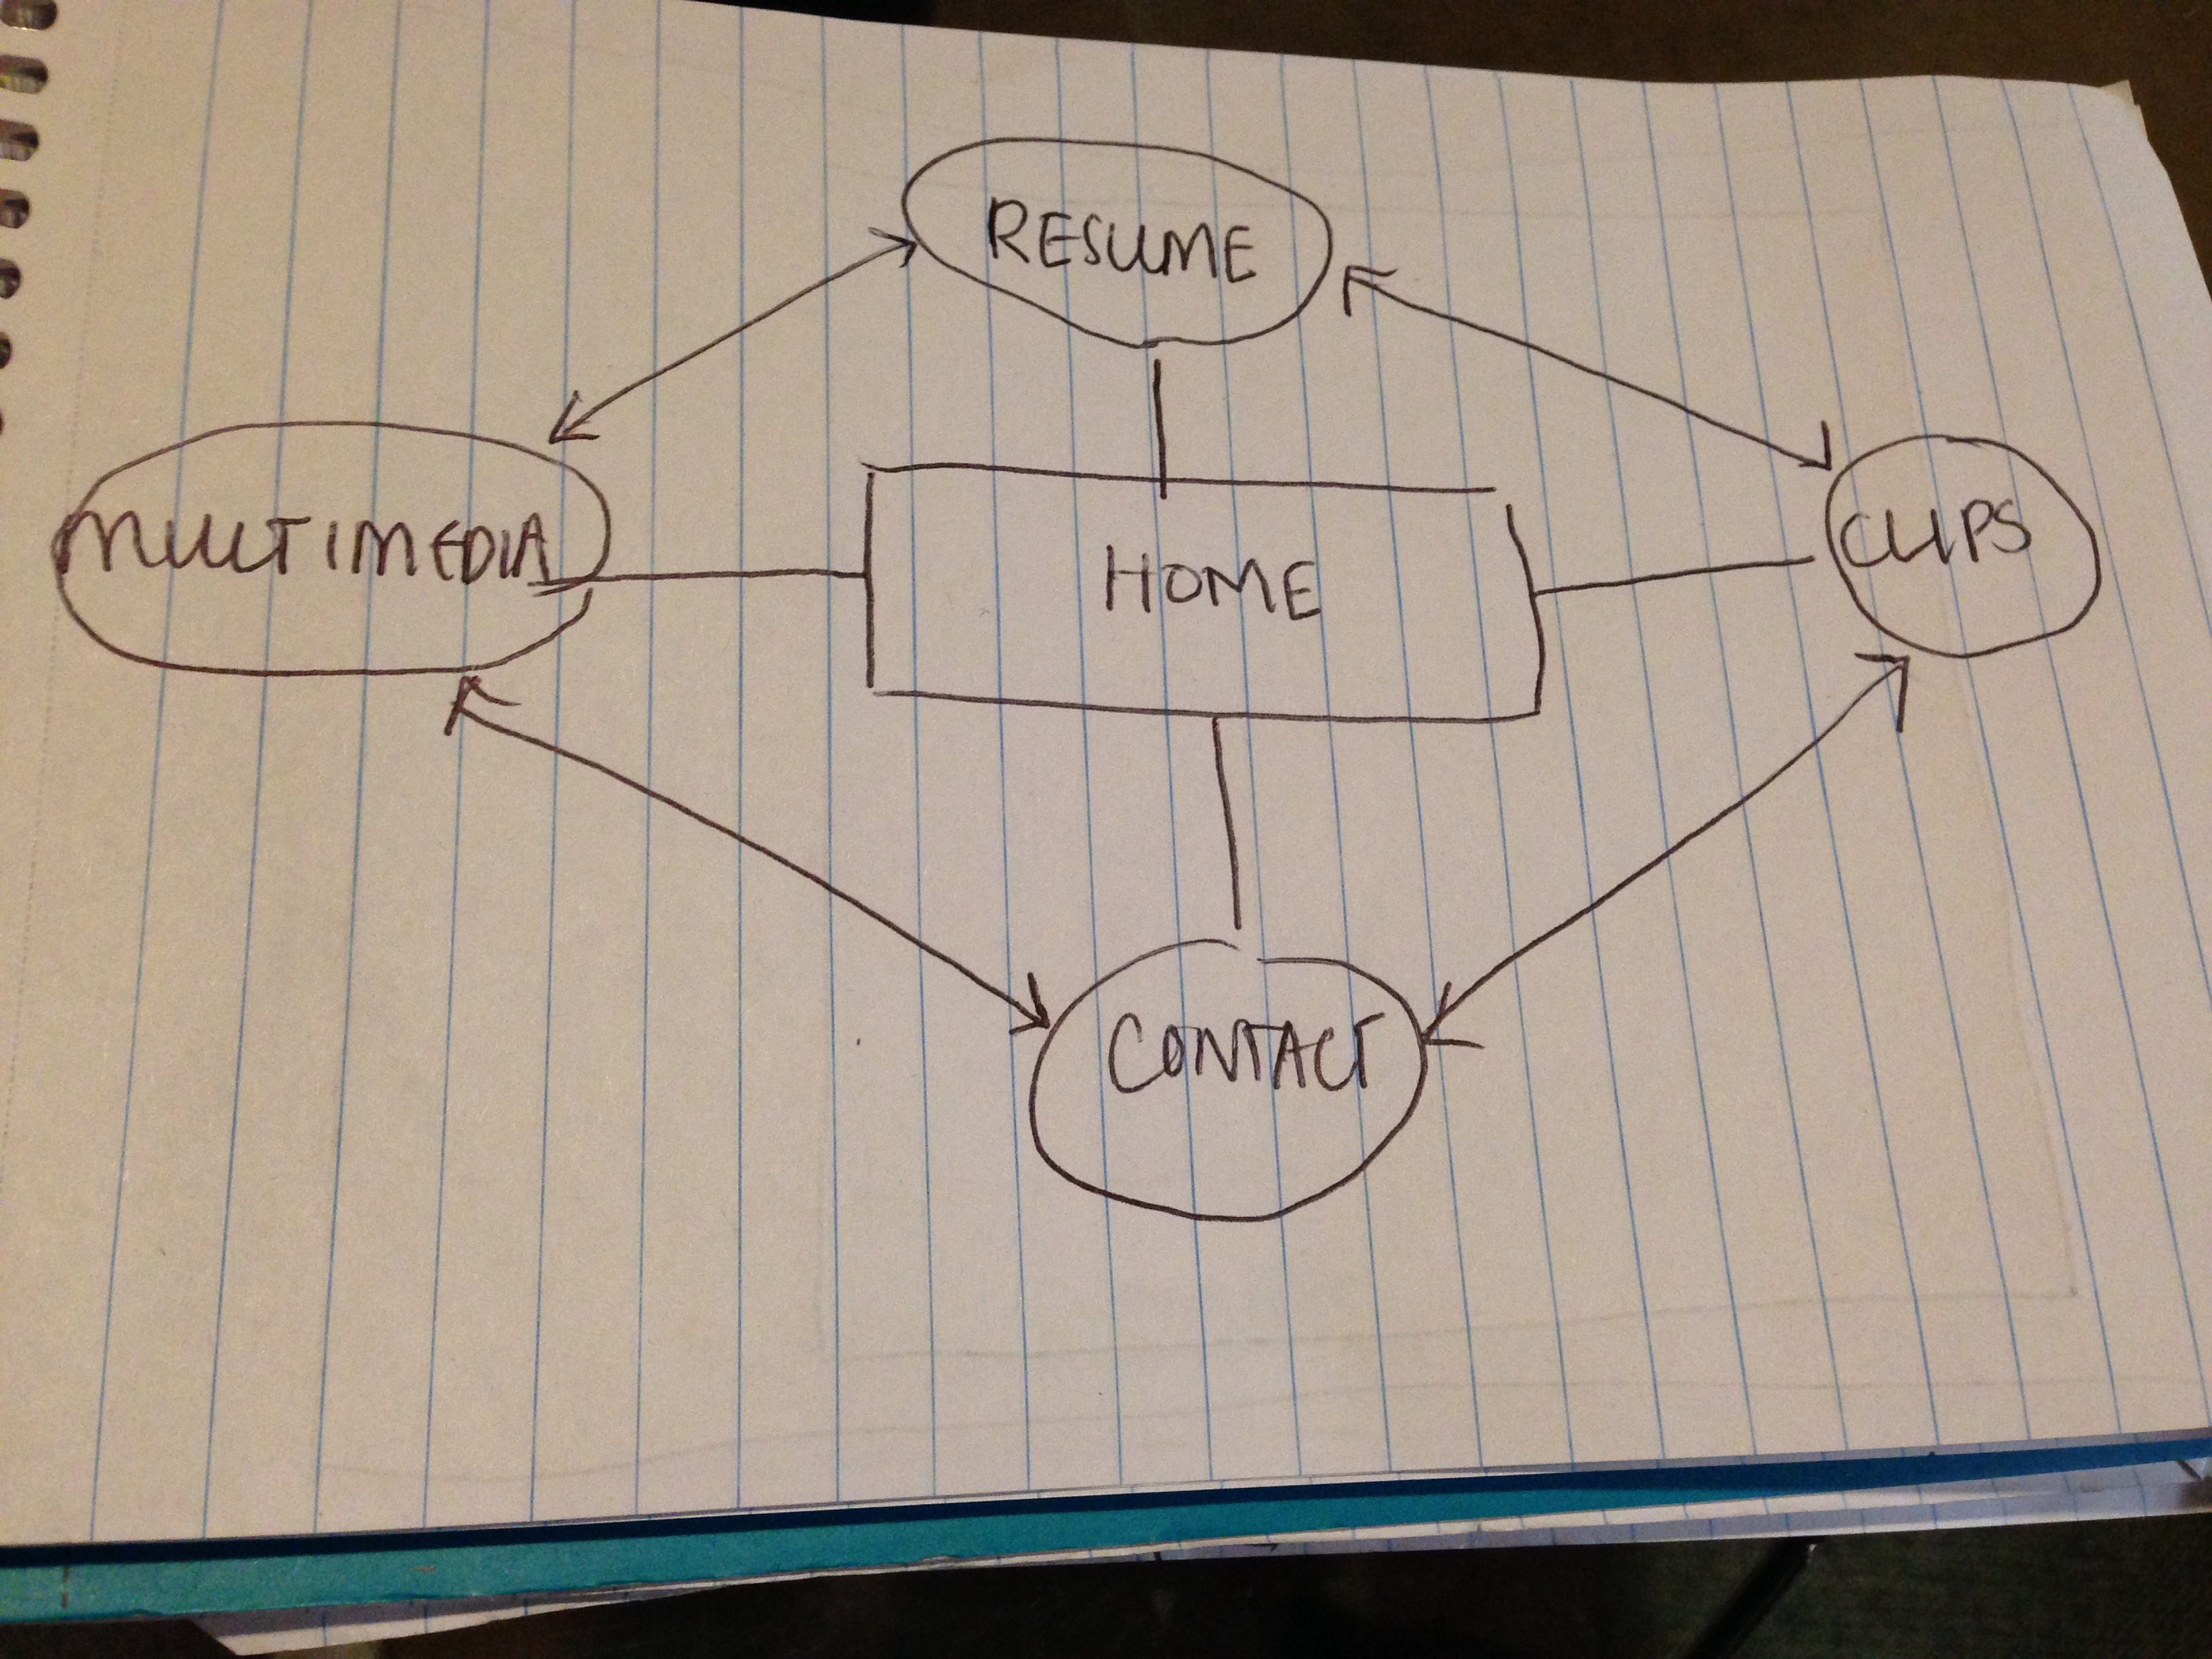 RESUME
MULTIMEDIA
HOME
CLIPS
CONTACT